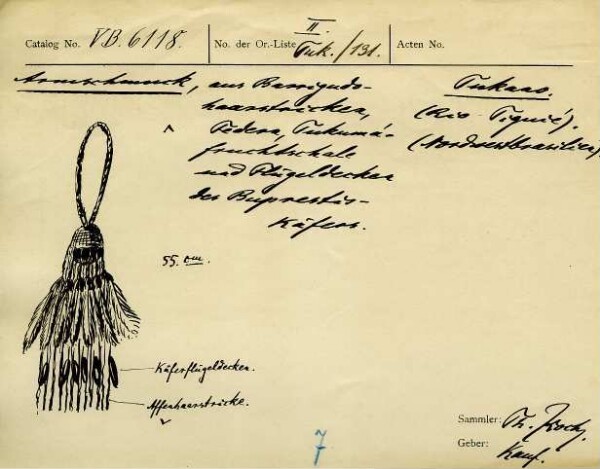 Catalog No. VB. 6118.
No. der Or.-Liste II. Tuk./131.
Acten No.
Armschmuck, aus Barrigudo-
haarstricken,
Federn, Tukumá-
fruchtschale
und Flügeldecken
des Buprestis-
Käfers.
Tukano.
(Rio Tiquié).
(Nordwestbrasilien).
55 cm.
Käferflügeldecken.
Affenhaarstricke.
Sammler: Th. Koch,
Geber: Kauf.
7